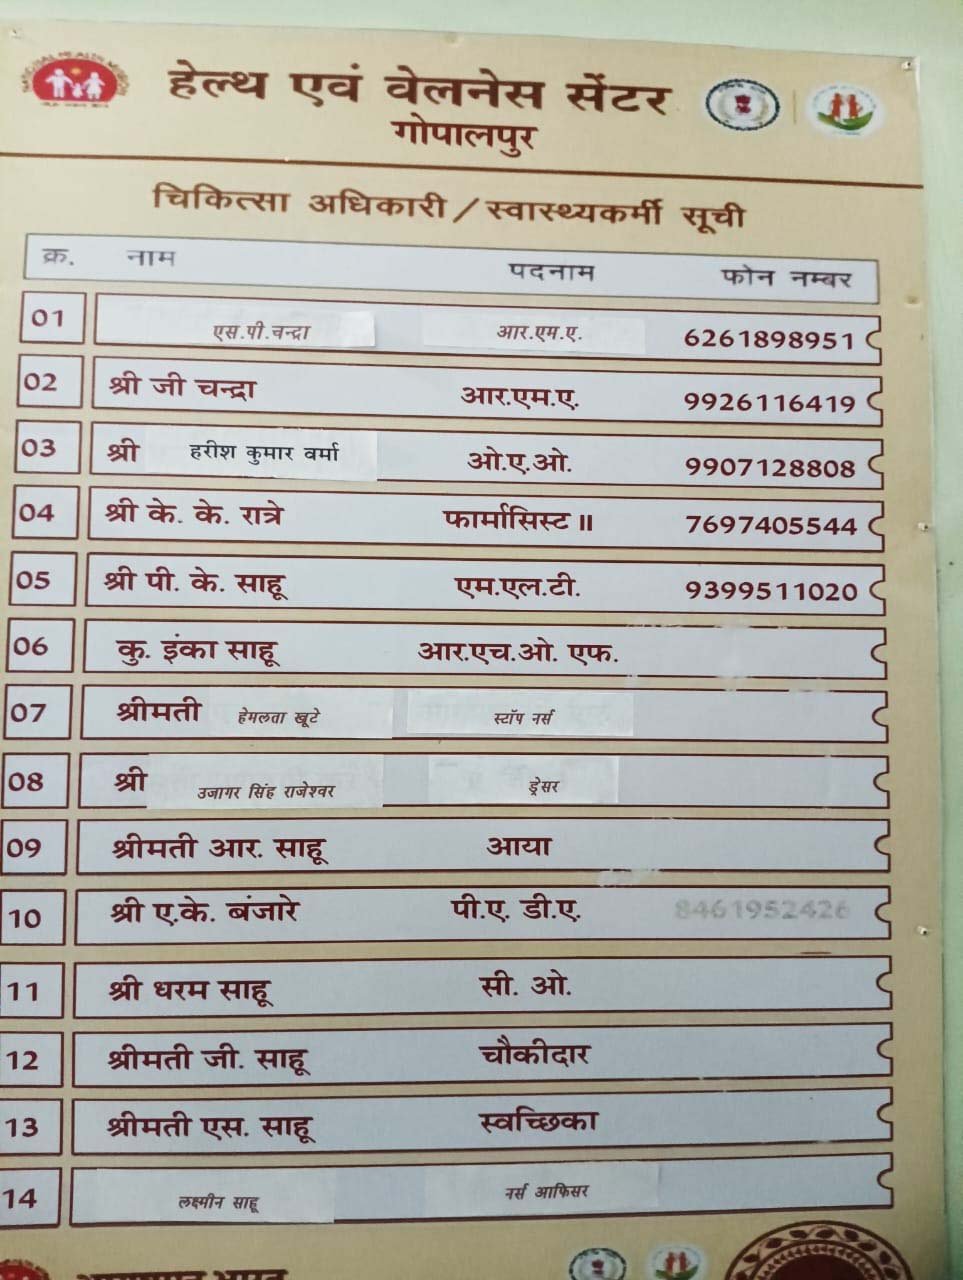 NATIONAL HEALTH MISSION
हेल्थ एवं वेलनेस सेंटर
गोपालपुर
चिकित्सा अधिकारी / स्वास्थ्यकर्मी सूची
क्र. नाम पदनाम फोन नम्बर
01 एस.पी.चन्द्रा आर.एम.ए. 6261898951
02 श्री जी चन्द्रा आर.एम.ए. 9926116419
03 श्री हरीश कुमार वर्मा ओ.ए.ओ. 9907128808
04 श्री के. के. रात्रे फार्मासिस्ट II 7697405544
05 श्री पी. के. साहू एम.एल.टी. 9399511020
06 कु. इंका साहू आर.एच.ओ. एफ.
07 श्रीमती हेमलता खूटे स्टॉप नर्स
08 श्री उजागर सिंह राजेश्वर ड्रेसर
09 श्रीमती आर. साहू आया
10 श्री ए.के. बंजारे पी.ए. डी.ए. 8461952426
11 श्री धरम साहू सी. ओ.
12 श्रीमती जी. साहू चौकीदार
13 श्रीमती एस. साहू स्वच्छिका
14 लक्ष्मीन साहू नर्स आफिसर